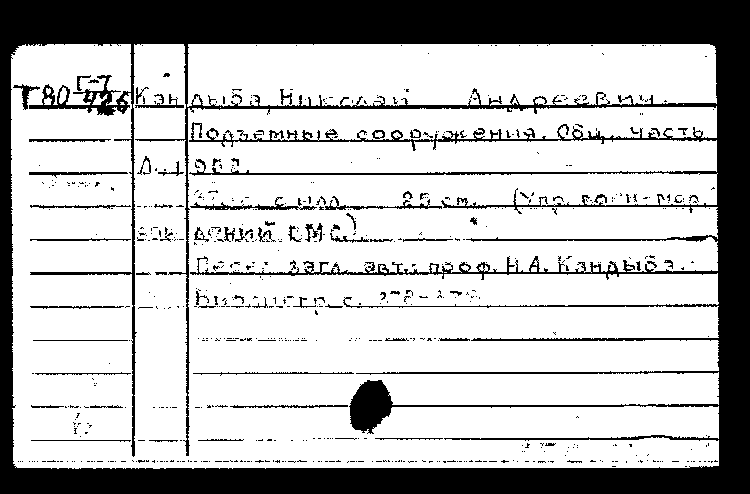 Г-7
Т 80 426 Кандыба, Николай Андреевич.
Подземные сооружения. Общ. часть
Л., 1952.
с илл. 25 см. (Упр. воен-мор.
заведений ВМС.)
Перед загл. авт.: проф. Н.А. Кандыба.
Библиогр. с.